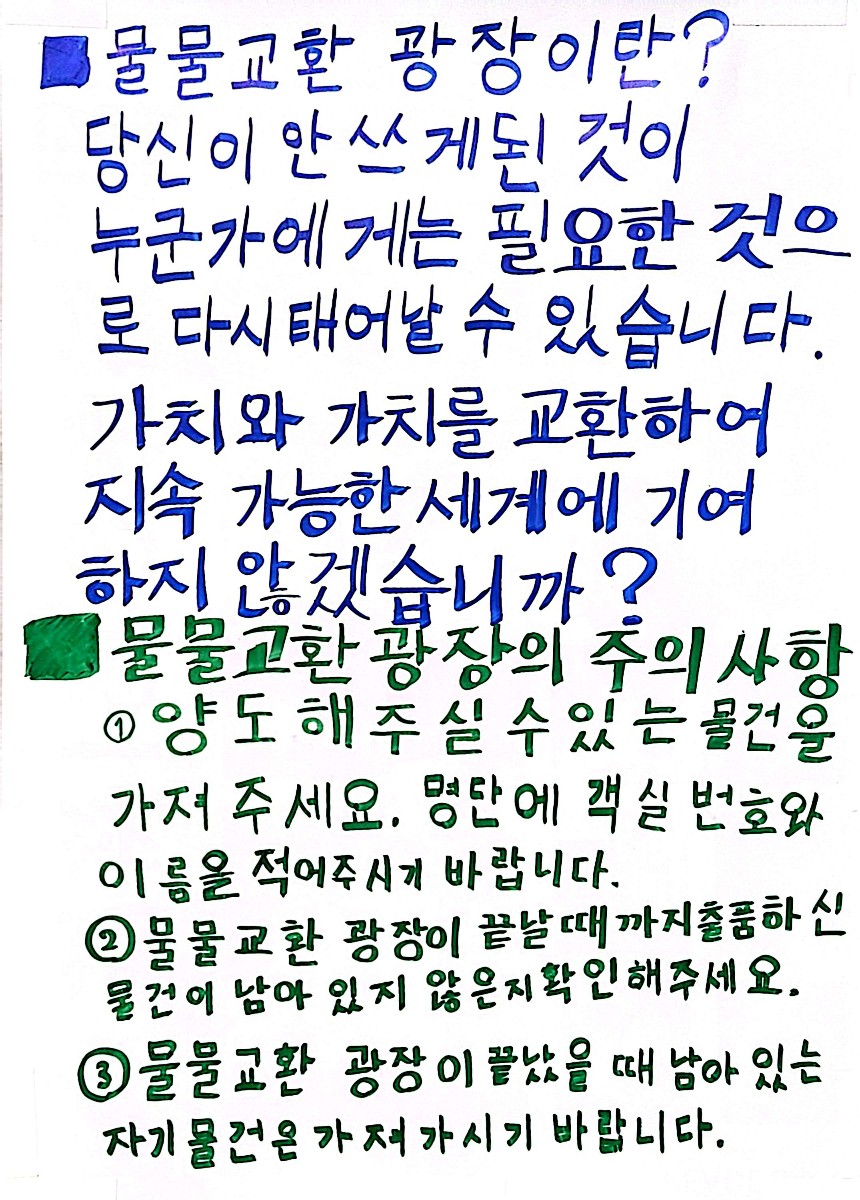 ■물물교환 광장이란?
당신이 안 쓰게된 것이
누군가에게는 필요한 것으
로 다시태어날 수 있습니다.
가치와 가치를 교환하여
지속 가능한 세계에 기여
하지 않겠습니까?
■물물교환 광장의 주의 사항
① 양도해주실 수 있는 물건을
가져 주세요. 명단에 객실 번호와
이름을 적어주시기 바랍니다.
② 물물교환 광장이 끝날때까지출품하신
물건이 남아 있지 않은지확인해주세요.
③ 물물교환 광장이 끝났을 때 남아 있는
자기물건은 가져가시기 바랍니다.